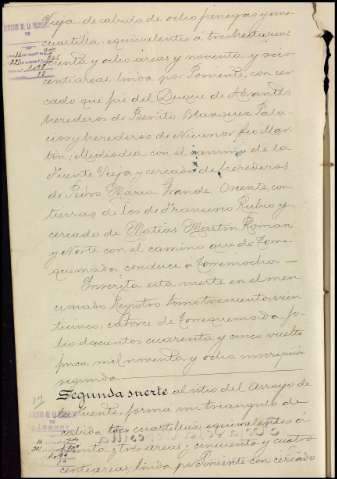 Vieja de cabida de ocho fanegas y un
cuartilla, equivalentes a tres hectareas
y ocho áreas y noventa y seis
centiareas, linda por Poniente, con cer
cado que fué del Duque de Abrantes
herederos de Benito Blazquez Pala
cios y herederos de Nicanor
Mediodia con el camino de la
Fuente Vieja y cercado de herederos
de Pedro Maria Grande. Oriente con
tierras de los de Francisco Rubio y
cercado de Matias Martin Roman
y Norte con el camino que de Torre
quemada conduce a Torremocha.—
Inscrita esta suerte en el men
cionado Registro tomo trescientos vein
ticinco, catorce de Torrequemada, fo
lio doscientos cuarenta y cinco vuelto
finca, mil noventa y ocho inscripcion
segunda
Segunda suerte al sitio del Arroyo de
forma un triangulo de
cabida tres cuartillas, equivalentes á
y tres áreas y cincuenta y cuatro
centiareas, linda por Poniente con cercado